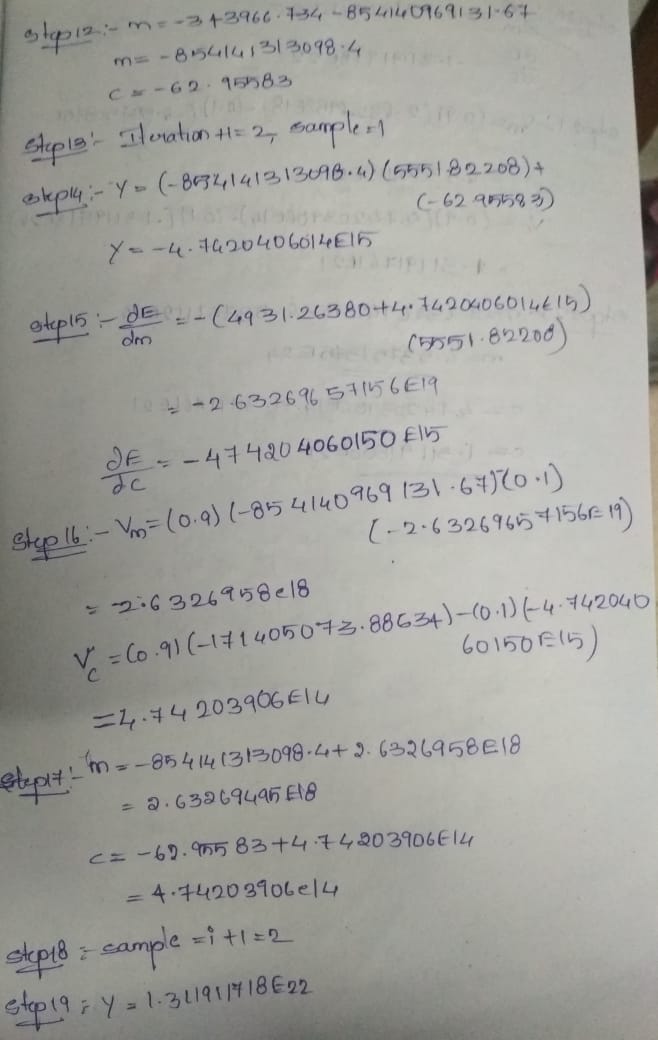 step12:- m = -343966.734 - 854140969131.67
m = -854141313098.4
c = -62.95583
Step13:- Iteration +1 = 2, sample = 1
step14:- Y = (-854141313098.4)(555182208) +
(-62.95583)
Y = -4.7420406014E15
step15:- ∂E/∂m = -(4931.26380 + 4.7420406014E15)
(5551.82208)
= -2.63269657156E19
∂E/∂c = -474204060150E15
Step16:- Vm = (0.9)(-854140969131.67)-(0.1)
(-2.63269657156E19)
= 2.6326958e18
Vc = (0.9)(-171405073.88634)-(0.1)(-4.742040
60150E15)
= 4.74203906E14
Step17:- m = -854141313098.4 + 2.6326958E18
= 2.63269495E18
c = -62.95583 + 4.74203906E14
= 4.74203906e14
step18 = sample = i + 1 = 2
step19 = Y = 1.311911718E22